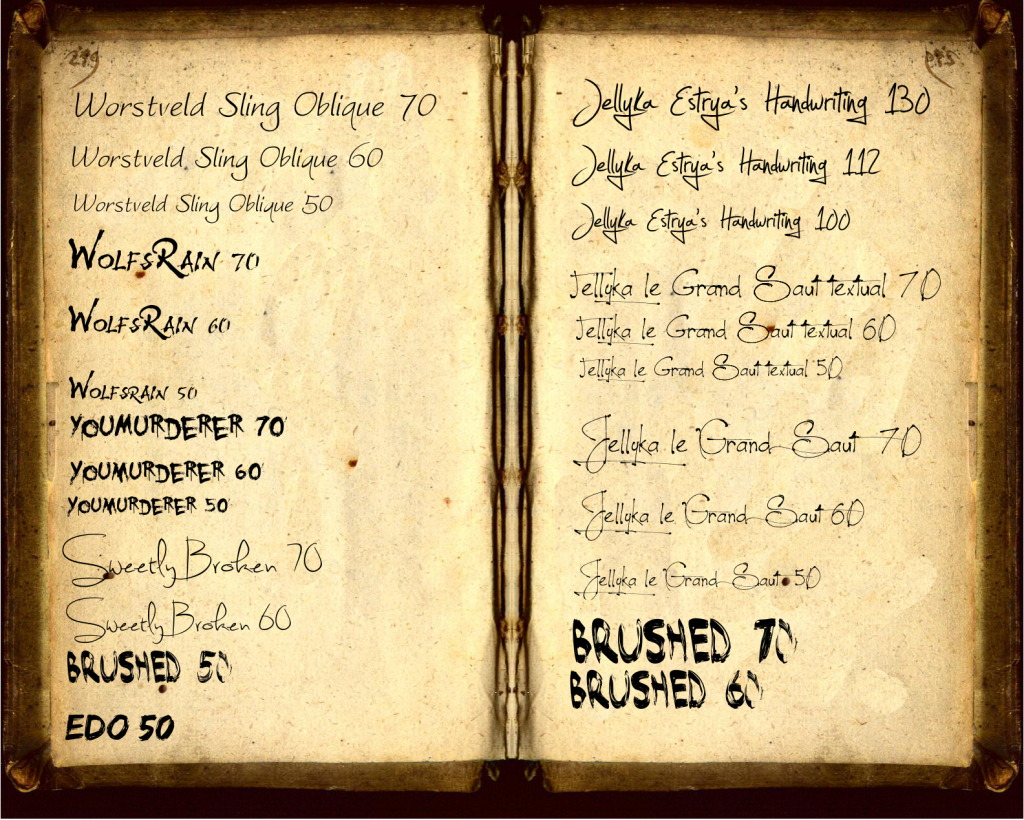 Worstveld Sling Oblique 70
Worstveld Sling Oblique 60
Worstveld Sling Oblique 50
WolfsRain 70
WolfsRain 60
Wolfsrain 50
YOUMURDERER 70
YOUMURDERER 60
YOUMURDERER 50
SweetlyBroken 70
SweetlyBroken 60
BRUSHED 50
EDO 50
Jellyka Estrya's Handwriting 130
Jellyka Estrya's Handwriting 112
Jellyka Estrya's Handwriting 100
Jellyka le Grand Saut textual 70
Jellyka le Grand Saut textual 60
Jellyka le Grand Saut textual 50
Jellyka le Grand Saut 70
Jellyka le Grand Saut 60
Jellyka le Grand Saut 50
BRUSHED 70
BRUSHED 60